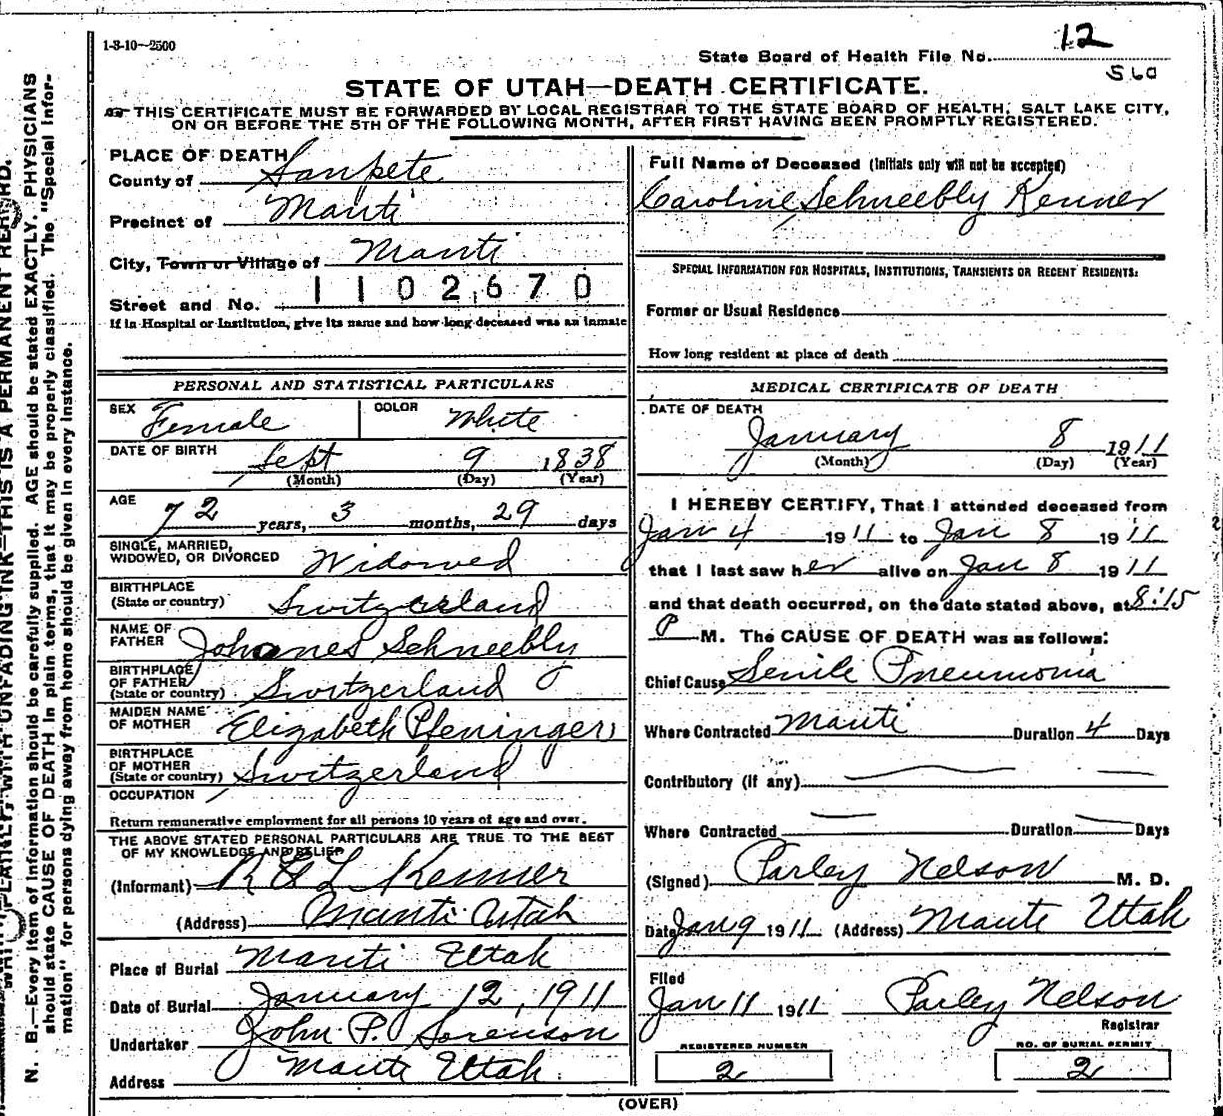 1-3-10—2500
State Board of Health File No. 12
560
STATE OF UTAH—DEATH CERTIFICATE.
THIS CERTIFICATE MUST BE FORWARDED BY LOCAL REGISTRAR TO THE STATE BOARD OF HEALTH, SALT LAKE CITY,
ON OR BEFORE THE 5TH OF THE FOLLOWING MONTH, AFTER FIRST HAVING BEEN PROMPTLY REGISTERED.
PLACE OF DEATH
County of Sanpete
Precinct of Manti
City, Town or Village of Manti
Street and No. 1102670
If in Hospital or Institution, give its name and how long deceased was an inmate
PERSONAL AND STATISTICAL PARTICULARS
SEX Female COLOR White
DATE OF BIRTH Sept 9 1838
(Month) (Day) (Year)
AGE 72 years, 3 months, 29 days
SINGLE, MARRIED,
WIDOWED, OR DIVORCED Widowed
BIRTHPLACE
(State or country) Switzerland
NAME OF
FATHER Johanes Schneebly
BIRTHPLACE
OF FATHER
(State or country) Switzerland
MAIDEN NAME
OF MOTHER Elizabeth Pfeninger
BIRTHPLACE
OF MOTHER
(State or country) Switzerland
OCCUPATION
Return remunerative employment for all persons 10 years of age and over.
THE ABOVE STATED PERSONAL PARTICULARS ARE TRUE TO THE BEST
OF MY KNOWLEDGE AND BELIEF
(Informant) Kenner
(Address) Manti Utah
Place of Burial Manti Utah
Date of Burial January 12, 1911
Undertaker John P. Sorenson
Address Manti Utah.
Full Name of Deceased (Initials only will not be accepted)
Caroline Schneebly Kenner
SPECIAL INFORMATION FOR HOSPITALS, INSTITUTIONS, TRANSIENTS OR RECENT RESIDENTS:
Former or Usual Residence
How long resident at place of death
MEDICAL CERTIFICATE OF DEATH
DATE OF DEATH
January 8 1911
(Month) (Day) (Year)
I HEREBY CERTIFY, That I attended deceased from
Jan 4 1911 to Jan 8 1911
that I last saw her alive on Jan 8 1911
and that death occurred, on the date stated above, at 8:15
P M. The CAUSE OF DEATH was as follows:
Chief Cause Senile Pneumonia
Where Contracted Manti Duration 4 Days
Contributory (if any)
Where Contracted Duration Days
(Signed) Parley Nelson M. D.
Date Jan 9 1911 (Address) Manti Utah
Filed
Jan 11 1911 Parley Nelson
Registrar
REGISTERED NUMBER
2
NO. OF BURIAL PERMIT
2
(OVER)
THIS IS A PERMANENT RECORD.
N. B.—Every item of information should be carefully supplied. AGE should be stated EXACTLY. PHYSICIANS
should state CAUSE OF DEATH in plain terms, that it may be properly classified. The "Special Infor-
mation" for persons dying away from home should be given in every instance.